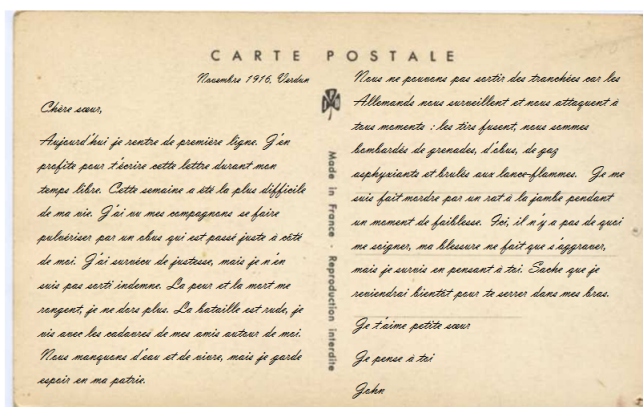 CARTE POSTALE
Novembre 1916, Verdun
Chère sœur,
Aujourd'hui je rentre de première ligne. J'en
profite pour t'écrire cette lettre durant mon
temps libre. Cette semaine a été la plus difficile
de ma vie. J'ai vu mes compagnons se faire
pulvériser par un obus qui est passé juste à côté
de moi. J'ai survécu de justesse, mais je n'en
suis pas sorti indemne. La peur et la mort me
rongent, je ne dors plus. La bataille est rude, je
vis avec les cadavres de mes amis autour de moi.
Nous manquons d'eau et de vivre, mais je garde
espoir en ma patrie.
Made in France - Reproduction interdite
Nous ne pouvons pas sortir des tranchées car les
Allemands nous surveillent et nous attaquent à
tous moments : les tirs fusent, nous sommes
bombardés de grenades, d'obus, de gaz
asphyxiants et brulés aux lance-flammes. Je me
suis fait mordre par un rat à la jambe pendant
un moment de faiblesse. Ici, il n'y a pas de quoi
me soigner, ma blessure ne fait que s'aggraver,
mais je survis en pensant à toi. Sache que je
reviendrai bientôt pour te serrer dans mes bras.
Je t'aime petite sœur
Je pense à toi
John